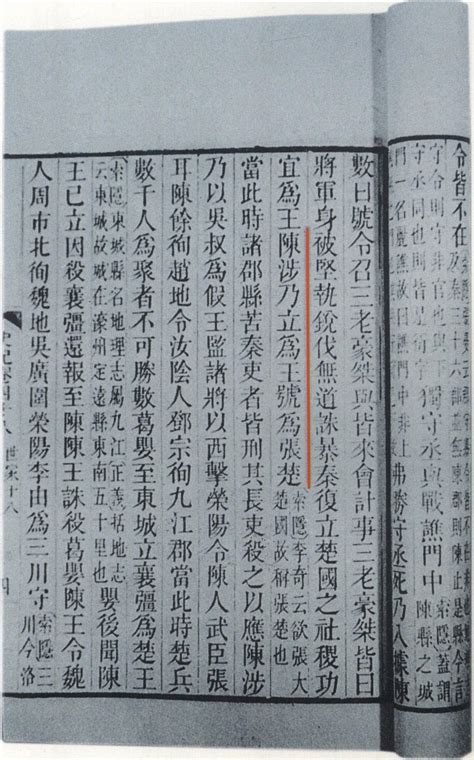 令皆不在
守令則守非官也與
守丞同也則皆是
獨守丞與戰譙門中
索隱蓋謂
陳縣之城
門一名麗譙故曰譙門中非上
弗勝守丞死乃入據陳
數日號令召三老豪桀與皆來會計事三老豪桀皆曰
將軍身被堅執銳伐無道誅暴秦復立楚國之社稷功
宜爲王陳涉乃立爲王號爲張楚索隱李奇云欲張大楚國故稱張楚也
當此時諸郡縣苦秦吏者皆刑其長吏殺之以應陳涉
乃以吳叔爲假王監諸將以西擊滎陽令陳人武臣張
耳陳餘徇趙地令汝陰人鄧宗徇九江郡當此時楚兵
數千人爲聚者不可勝數葛嬰至東城立襄彊爲楚王
索隱東城縣名地理志屬九江正義括地志云東城故城在濠州定遠縣東南五十里也嬰後聞陳
王已立因殺襄彊還報至陳陳王誅殺葛嬰陳王令魏
人周市北徇魏地吳廣圍滎陽李由爲三川守索隱三川今洛
史記卷四十八
世家十八
四